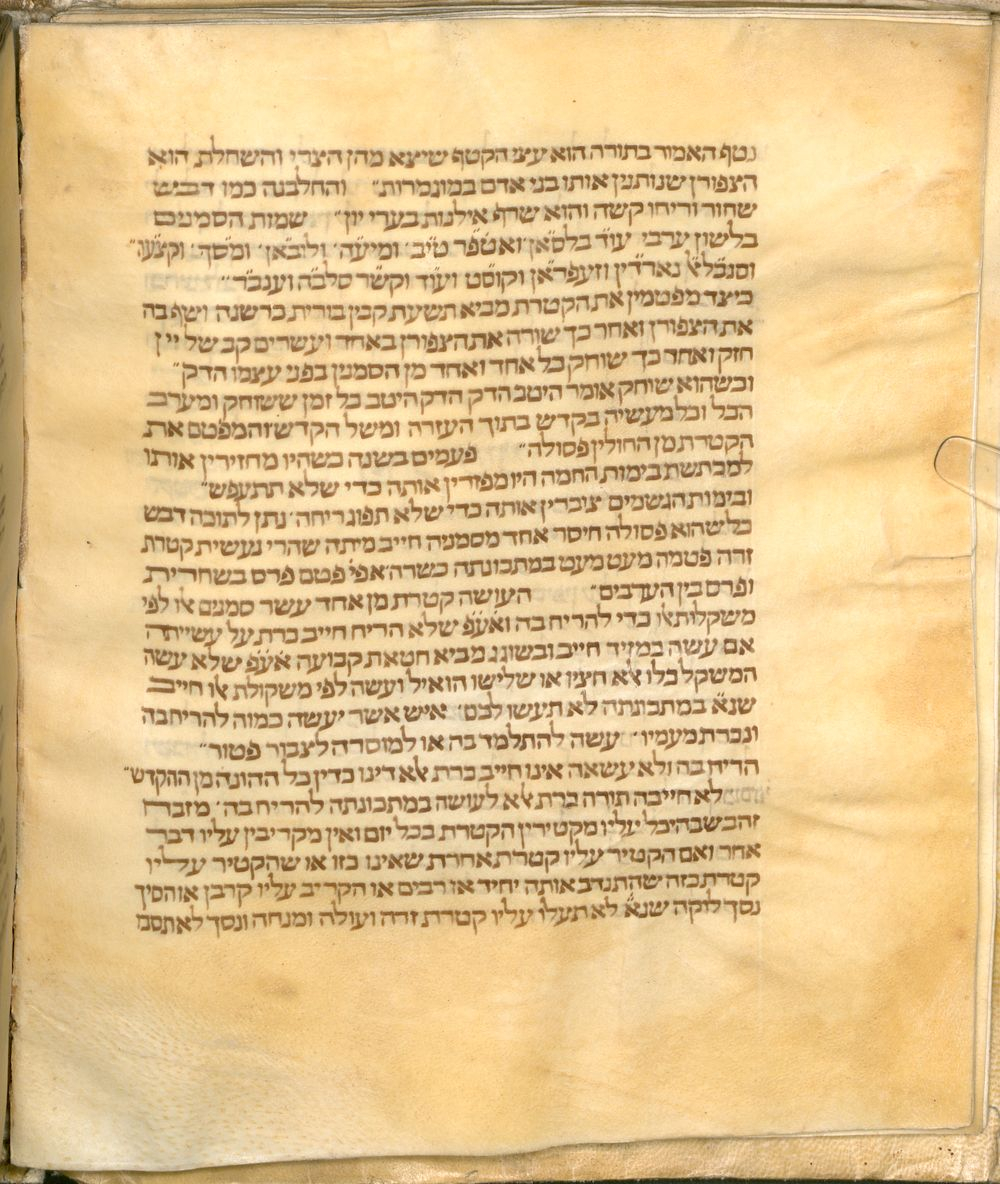 נטף האמור בתורה הוא עצי הקטף שיצא מהן הצרי והשחלת הוא
הצפורן שנותנין אותו בני אדם במוגמרות״ והחלבנה כמו דבש
שחור וריחו קשה והוא שרף אילנות בערי יון״ שמות הסמנים
בלשון ערבי עוד בלסאן׳ ואטׄפׄר טׄיׄב׳ ומיעה׳ ולובׄאן׳ ומׄסך׳ וקצׄעה״
וסנבלׄאׄ נארדׄין וזעפראׄן וקוסט ועוד וקשׄר סלכׄה ועבׄר״
כיצד מפטמין את הקטרת מביא תשעת קבין בורית כרשנה ושף בה
את הצפורן ואחר כך שורה את הצפורן באחד ועשרים קב של יין
חזק ואחר כך שוחק כל אחד ואחד מן הסמנין בפני עצמו הדק״
וכשהוא שוחק אומר היטב הדק הדק היטב כל זמן ששוחק ומערב
הכל וכל מעשיה בקדש בתוך העזרה ומשל הקדש והמפטם את
הקטרת מן החולין פסולה״ פעמים בשנה כשהיו מחזירין אותו
למכתשת בימות החמה היו מפזרין אותה כדי שלא תתעפש״
ובימות הגשמים צוברין אותה כדי שלא תפוג ריחה׳ נתן לתוכה דבש
כל שהוא פסולה חיסר אחד מסמניה חייב מיתה שהרי נעשית קטרת
זרה פטמה מעט מעט במתכונתה כשרה׳ אפי׳ פטם פרס בשחרית
ופרס בין הערבים״ העושה קטרת מן אחד עשר סמנים אלו לפי
משקלות אלו כדי להריח בה ואׄעׄפׄ שלא הריח חייב כרת על עשייתה
אם עשה במזיד חייב ובשוגג מביא חטאת קבועה אׄעׄפׄ שלא עשה
המשקל כולו אלא חציו או שלישו הואיל ועשה לפי משקולת אלו חייב
שנאׄ במתכונתה לא תעשו לכם׳ איש אשר יעשה כמוה להריח בה
ונכרת מעמיו׳ עשה להתלמד בה או למוסרה לצבור פטור״
הריח בה ולא עשאה אינו חייב כרת אלא דינו כדין כל ההונה מן ההקדש״
לא חייבה תורה כרת אלא לעושה במתכונתה להריח בה׳ מזבח
זהב שבהיכל עליו מקטירין הקטרת בכל יום ואין מקריבין עליו דבר
אחר ואם הקטיר עליו קטרת אחרת שאינו כזו או שהקטיר עליו
קטרת כזה שהתנדב אותה יחיד או רבים או הקריב עליו קרבן או הסיך
נסך לוקה שנאׄ לא תעלו עליו קטרת זרה ועולה ומנחה ונסך לא תסכו